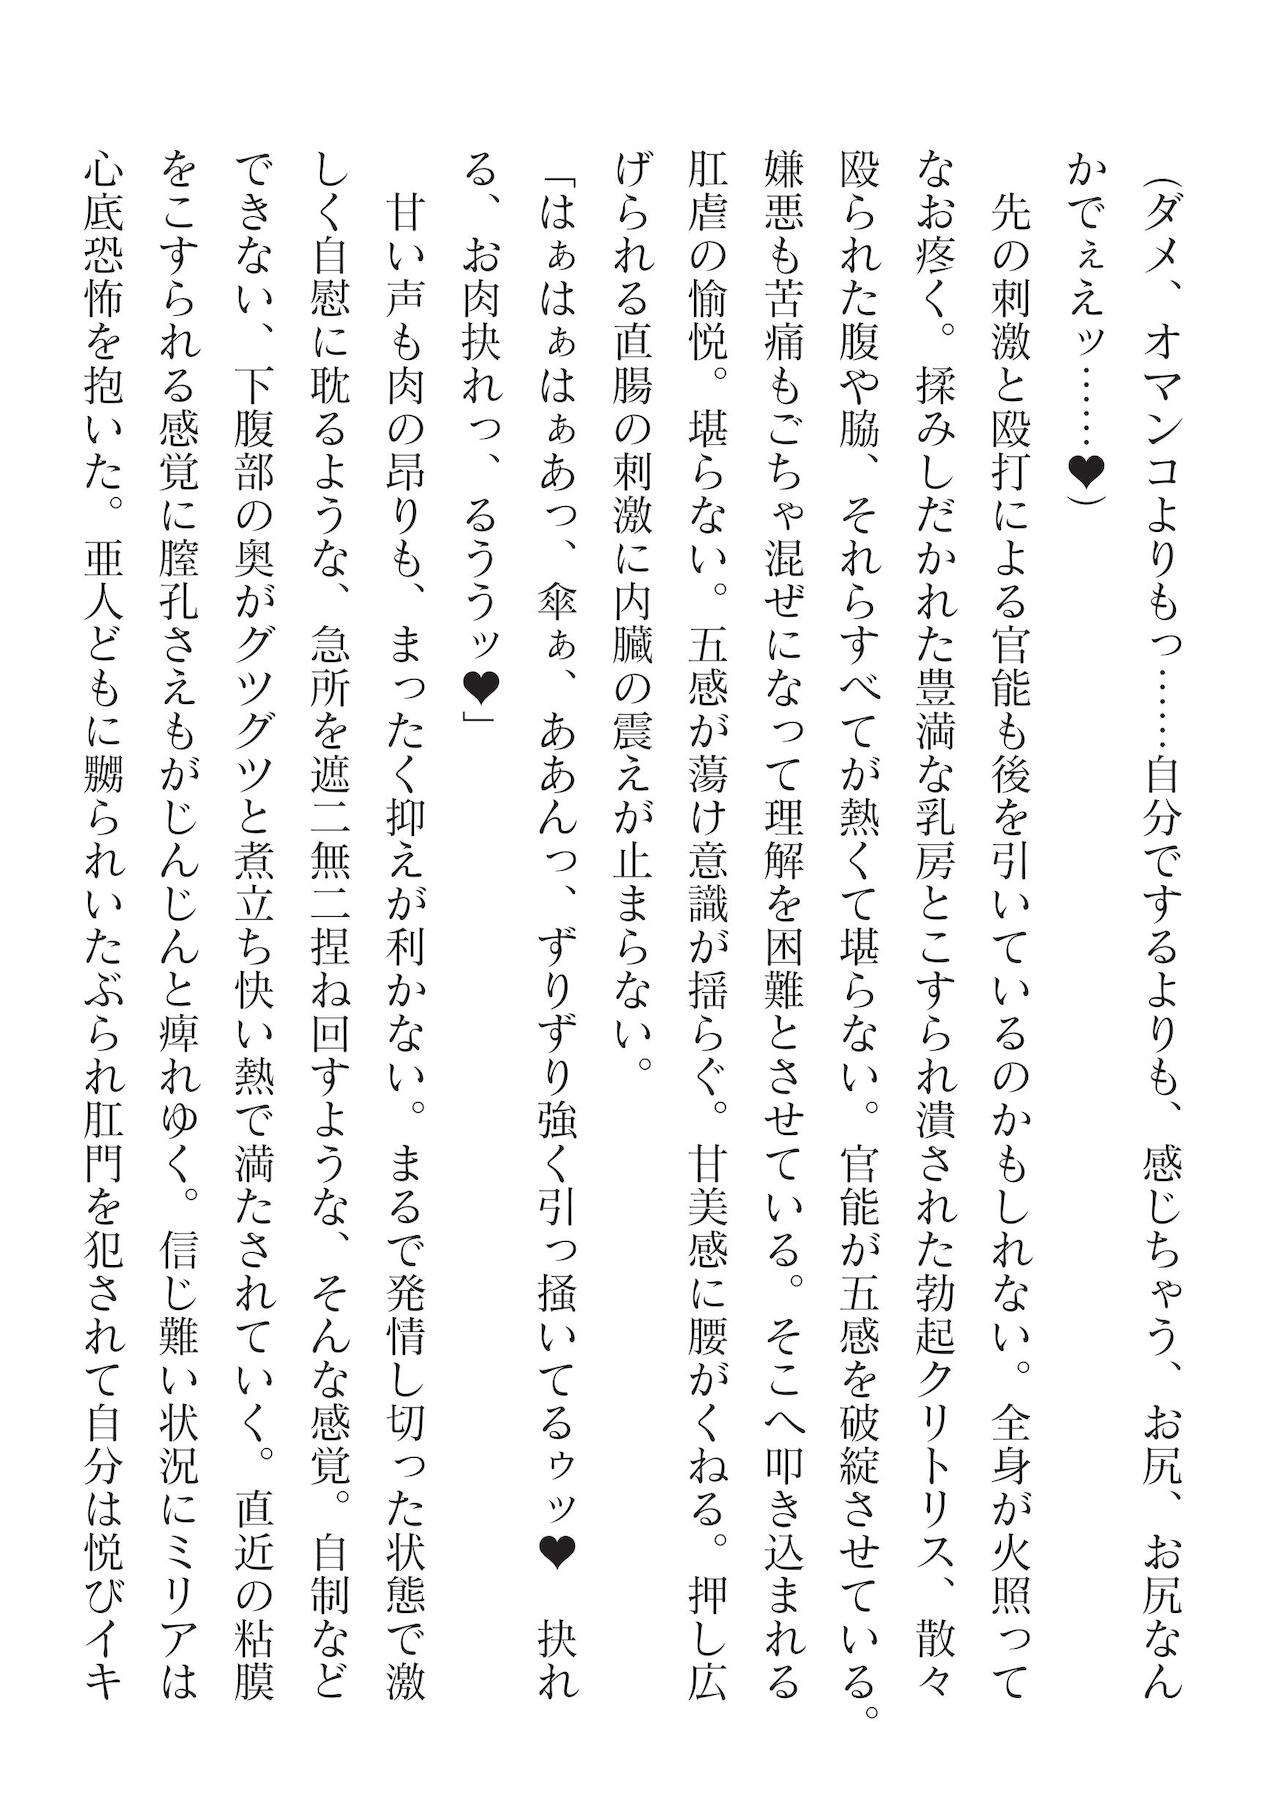 （ダメ、オマンコよりもっ……自分でするよりも、感じちゃう、お尻、お尻なん
かでぇえッ……♥）
　先の刺激と殴打による官能も後を引いているのかもしれない。全身が火照って
なお疼く。揉みしだかれた豊満な乳房とこすられ潰された勃起クリトリス、散々
殴られた腹や脇、それらすべてが熱くて堪らない。官能が五感を破綻させている。
嫌悪も苦痛もごちゃ混ぜになって理解を困難とさせている。そこへ叩き込まれる
肛虐の愉悦。堪らない。五感が蕩け意識が揺らぐ。甘美感に腰がくねる。押し広
げられる直腸の刺激に内臓の震えが止まらない。
「はぁはぁはぁあっ、傘ぁ、ああんっ、ずりずり強く引っ掻いてるゥッ♥　抉れ
る、お肉抉れっ、るううッ♥」
　甘い声も肉の昂りも、まったく抑えが利かない。まるで発情し切った状態で激
しく自慰に耽るような、急所を遮二無二捏ね回すような、そんな感覚。自制など
できない、下腹部の奥がグツグツと煮立ち快い熱で満たされていく。直近の粘膜
をこすられる感覚に膣孔さえもがじんじんと痺れゆく。信じ難い状況にミリアは
心底恐怖を抱いた。亜人どもに嬲られいたぶられ肛門を犯されて自分は悦びイキ